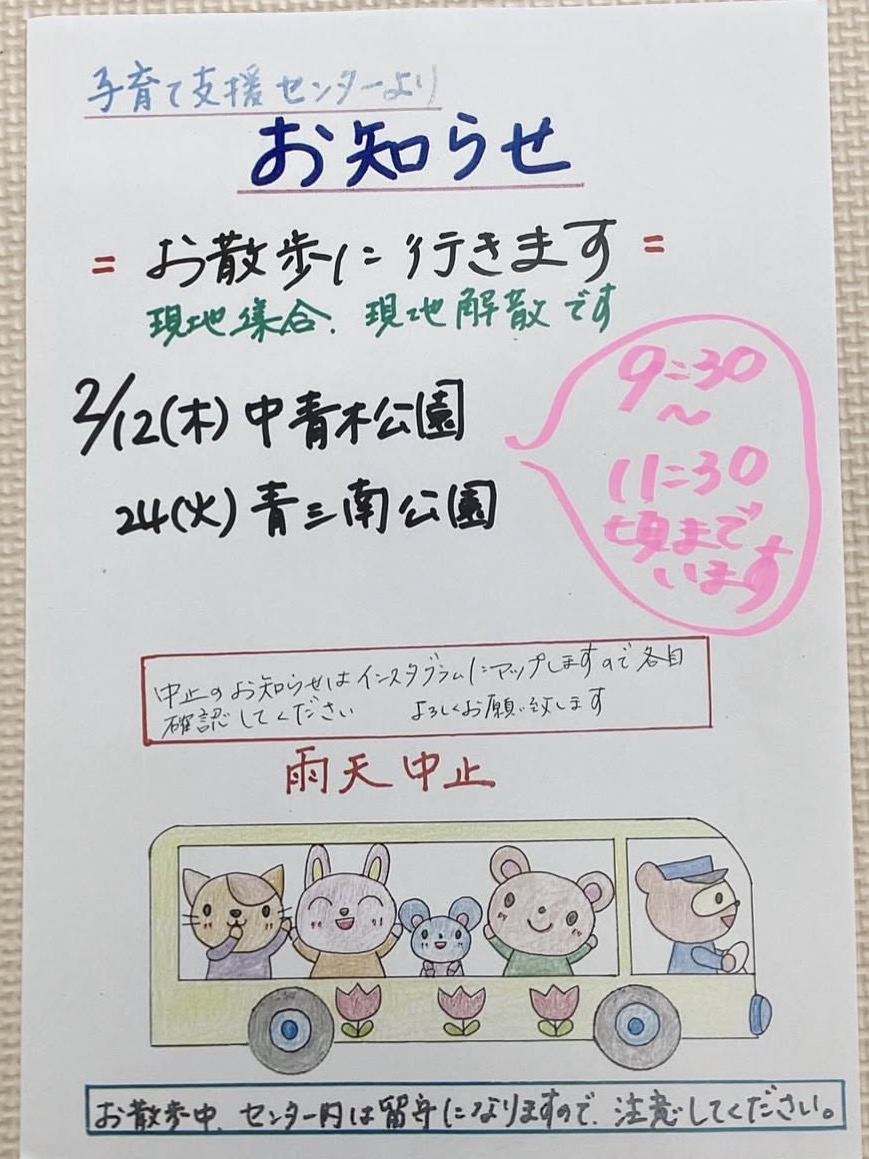 子育て支援センターより
お知らせ
= お散歩に行きます =
現地集合、現地解散です
2/12(木) 中青木公園
24(火) 青三南公園
9:30
〜
11:30
頃まで
います
中止のお知らせはインスタグラムにアップしますので各自
確認してください よろしくお願い致します
雨天中止
お散歩中、センター内は留守になりますので、注意してください。